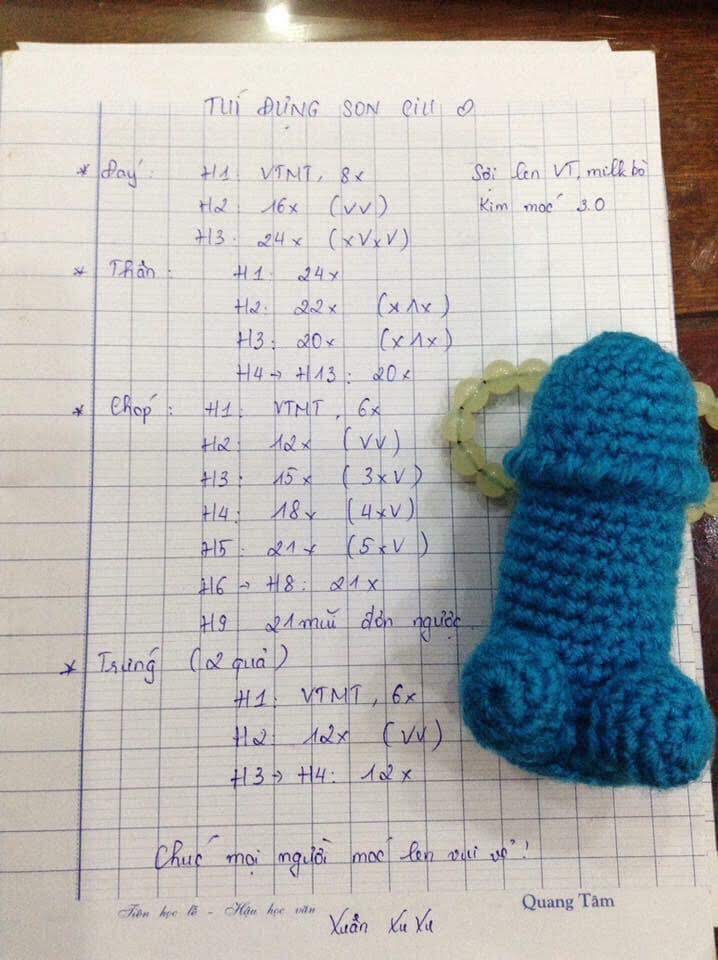 TÚI ĐỰNG SON CIU
* Đáy: H1: VTMT, 8x
Sợi len VT, milk bò
H2: 16x (VV)
Kim móc 3.0
H3: 24x (xVxV)
* Thân: H1: 24x
H2: 22x (x∧x)
H3: 20x (x∧x)
H4 → H13: 20x
* Chóp: H1: VTMT, 6x
H2: 12x (VV)
H3: 15x (3xV)
H4: 18x (4xV)
H5: 21x (5xV)
H6 → H8: 21x
H9 21 mũi đơn ngược.
* Trứng (2 quả)
H1: VTMT, 6x
H2: 12x (VV)
H3 → H4: 12x
Chúc mọi người móc len vui vẻ!
Tiên học lễ - Hậu học văn
Quang Tâm
Xuân Xu Xu